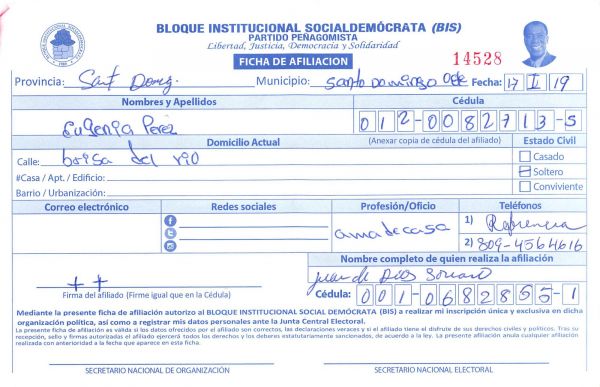 BLOQUE INSTITUCIONAL SOCIALDEMÓCRATA (BIS)
PARTIDO PEÑAGOMISTA
Libertad, Justicia, Democracia y Solidaridad
FICHA DE AFILIACION
14528
Provincia: Sant Domg. Municipio: Santo Domingo Oete Fecha: 17 I 19
Nombres y Apellidos
Cédula
Eugenia Perez
012-0082713-5
Domicilio Actual
(Anexar copia de cédula del afiliado)
Estado Civil
Calle: brisa del rio
Casado
#Casa / Apt. / Edificio:
Soltero
Barrio / Urbanización:
Conviviente
Correo electrónico
Redes sociales
Profesión/Oficio
Teléfonos
ama de casa
1) Refrencia
2) 809-4564616
Nombre completo de quien realiza la afiliación
Juan de Dios Soriano
++
Firma del afiliado (Firme igual que en la Cédula)
Cédula: 001-0682855-1
Mediante la presente ficha de afiliación autorizo al BLOQUE INSTITUCIONAL SOCIAL DEMÓCRATA (BIS) a realizar mi inscripción única y exclusiva en dicha
organización política, así como a registrar mis datos personales ante la Junta Central Electoral.
La presente ficha de afiliación es válida si los datos ofrecidos por el afiliado son correctos, las declaraciones veraces y si el afiliado tiene el disfrute de sus derechos civiles y políticos. Tras su
recepción, sello y firmas autorizadas el afiliado ejercerá todos los derechos y los deberes estatutariamente sancionados, de acuerdo a la ley. La presente afiliación anula cualquier afiliación
realizada con anterioridad a la fecha que aparece en esta ficha.
SECRETARIO NACIONAL DE ORGANIZACIÓN
SECRETARIO NACIONAL ELECTORAL